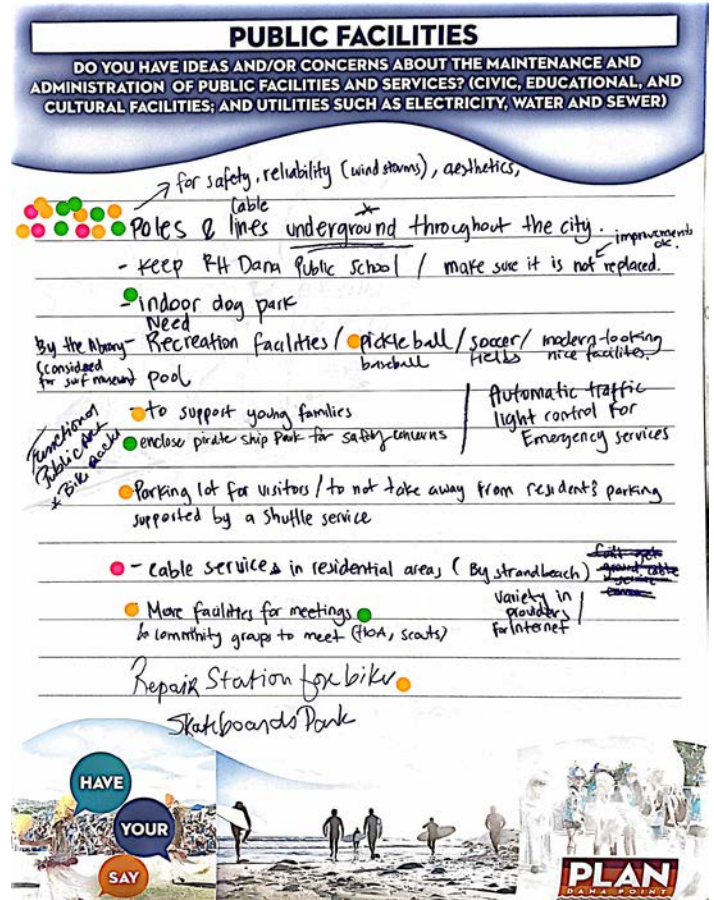 PUBLIC FACILITIES
DO YOU HAVE IDEAS AND/OR CONCERNS ABOUT THE MAINTENANCE AND
ADMINISTRATION OF PUBLIC FACILITIES AND SERVICES? (CIVIC, EDUCATIONAL, AND
CULTURAL FACILITIES; AND UTILITIES SUCH AS ELECTRICITY, WATER AND SEWER)
for safety, reliability (wind storms), aesthetics,
cable
Poles & lines underground throughout the city.
improvements
ok.
- Keep RH Dana Public School / make sure it is not replaced.
- indoor dog park
Need
By the library - Recreation facilities / pickleball / soccer / modern-looking
(considered baseball fields nice facilites.
for surf museum) pool
to support young families
Automatic traffic
light control For
Emergency services
enclose pirate ship Park for safety concerns
Functional
Public Art
* Bike Racks
Parking lot for visitors / to not take away from resident's parking
supported by a shuttle service
- cable services in residential areas (By strand beach)
variety in
providers
For Internet
More facilities for meetings
community groups to meet (HOA, scouts)
Repair Station for bike
Skateboards Park
HAVE
YOUR
SAY
PLAN
DANA POINT